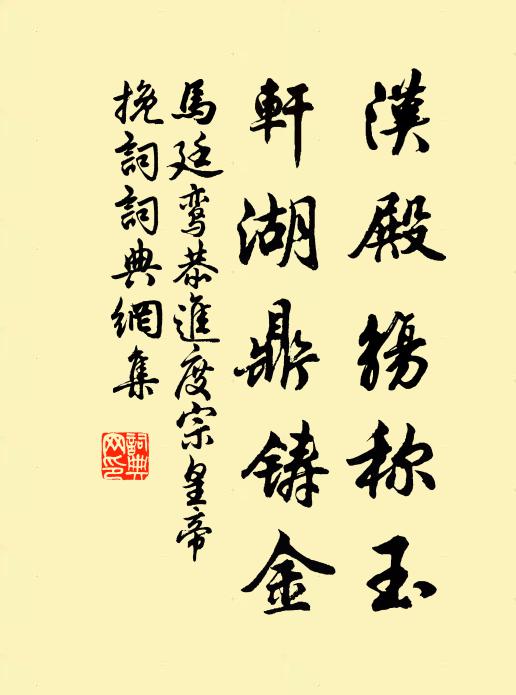 漢殿觴称玉
軒湖鼎鑄金
馬廷鸾恭進度宗皇帝
挽詞詞典網集
詞典网印